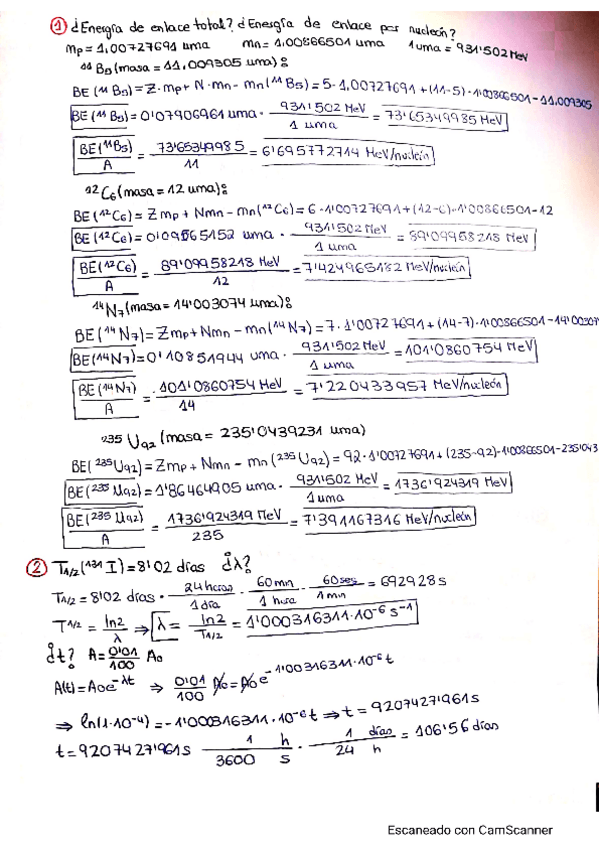 ① ¿Energía de enlace total? ¿Energía de enlace por nucleón?
mp = 1,00727691 uma mn = 1,00866501 uma 1uma = 931'502 MeV
¹¹B₅ (masa = 11,009305 uma):
BE (¹¹B₅) = Z·mp + N·mn - mn (¹¹B₅) = 5·1,00727691 + (11-5)·1'00866501 - 11,009305
BE (¹¹B₅) = 0'07906961 uma · 931'502 MeV / 1 uma = 73'65349985 MeV
BE(¹¹B₅) / A = 73'65349985 / 11 = 6'695772714 MeV/nucleón
¹²C₆ (masa = 12 uma):
BE (¹²C₆) = Zmp + Nmn - mn (¹²C₆) = 6·1'00727691 + (12-6)·1'00866501 - 12
BE (¹²C₆) = 0'09565152 uma · 931'502 MeV / 1 uma = 89'09958218 MeV
BE (¹²C₆) / A = 89'09958218 MeV / 12 = 7'424965182 MeV/nucleón
¹⁴N₇ (masa = 14'003074 uma):
BE (¹⁴N₇) = Zmp + Nmn - mn (¹⁴N₇) = 7·1'00727691 + (14-7)·1'00866501 - 14'00307
BE (¹⁴N₇) = 0'10851944 uma · 931'502 MeV / 1 uma = 101'0860754 MeV
BE (¹⁴N₇) / A = 101'0860754 MeV / 14 = 7'220433957 MeV/nucleón
²³⁵U₉₂ (masa = 235'0439231 uma)
BE (²³⁵U₉₂) = Zmp + Nmn - mn (²³⁵U₉₂) = 92·1'00727691 + (235-92)·1'00866501 - 235'043
BE (²³⁵U₉₂) = 1'86464905 uma · 931'502 MeV / 1uma = 1736'924319 MeV
BE (²³⁵U₉₂) / A = 1736'924319 MeV / 235 = 7'391167316 MeV/nucleón
② T₁/₂ (¹³¹I) = 8'02 días ¿λ?
T₁/₂ = 8'02 días · 24 horas / 1 día · 60 min / 1 hora · 60 seg / 1 min = 692928 s
T₁/₂ = ln2 / λ ⇒ λ = ln2 / T₁/₂ = 1'000316311·10⁻⁶ s⁻¹
¿t? A = 0'01 / 100 A₀
A(t) = A₀e^-λt ⇒ 0'01 / 100 A₀ = A₀e^-1'00316311·10⁻⁶ t
⇒ ln(1·10⁻⁴) = -1'000316311·10⁻⁶ t ⇒ t = 9207427'961 s
t = 9207427'961 s 1 h / 3600 s · 1 días / 24 h = 106'56 días
Escaneado con CamScanner